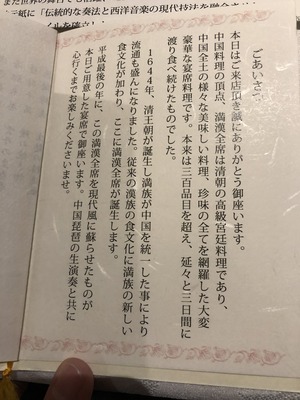 に「伝統的な奏法と西洋音楽の現代技法を
ごあいさつ
本日はご来店頂き誠にありがとう御座います。
中国料理の頂点、満漢全席は清朝の高級宮廷料理であり、
中国全土の様々な美味しい料理、珍味の全てを網羅した大変
豪華な宴席料理です。本来は三百品目を超え、延々と三日間に
渡り食べ続けたものでした。
1644年、清王朝が誕生し満族が中国を統一した事により
流通も盛んになりました。従来の漢族の食文化に満族の新しい
食文化が加わり、ここに満漢全席が誕生します。
平成最後の年に、この満漢全席を現代風に蘇らせたものが
本日ご用意した宴席で御座います。中国琵琶の生演奏と共に
心行くまでお楽しみくださいませ。